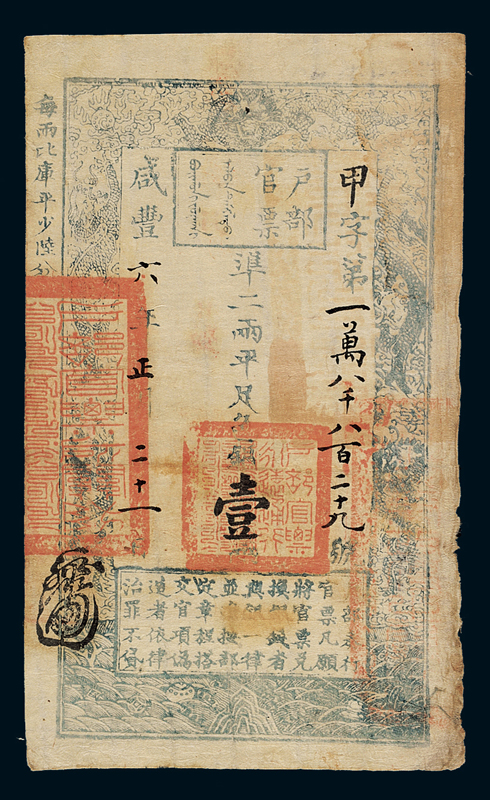 戶部
官票
甲字第一萬八千八百二十九號
準二兩平足色銀壹
咸豐六年正 二十一
每兩比庫平少陸分
部奏行
官票凡願
將官票兌
換銀錢者
與銀一律
並准按部
定章程搭
交官項偽
造者依律
治罪不貸